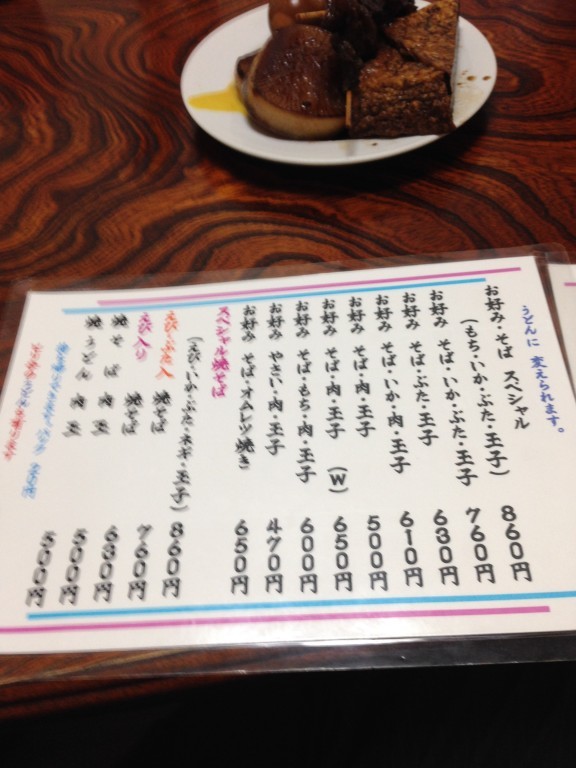 うどんに 変えられます。
お好み・そば スペシャル
(もち・いか・ぶた・玉子) 860円
お好み そば・いか・ぶた・玉子 760円
お好み そば・ぶた・玉子 630円
お好み そば・いか・肉・玉子 610円
お好み そば・肉・玉子 500円
お好み そば・肉・玉子 (W) 650円
お好み そば・もち・肉・玉子 600円
お好み やさい・肉・玉子 470円
お好み そば・オムレツ焼き 650円
スペシャル焼そば
(えび・いか・ぶた・ネギ・玉子) 860円
えび・ぶた入 焼そば 760円
えび入り 焼そば 630円
焼そば 肉玉 500円
焼うどん 肉玉 500円